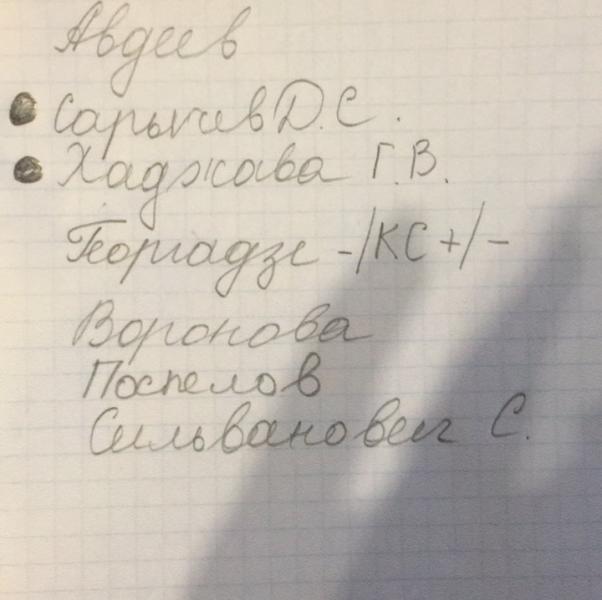 Авдеев
• Сарычев Д.С.
• Хаджава Г.В.
Георгадзе -/КС+/-
Воронова
Поспелов
Сильванович С.